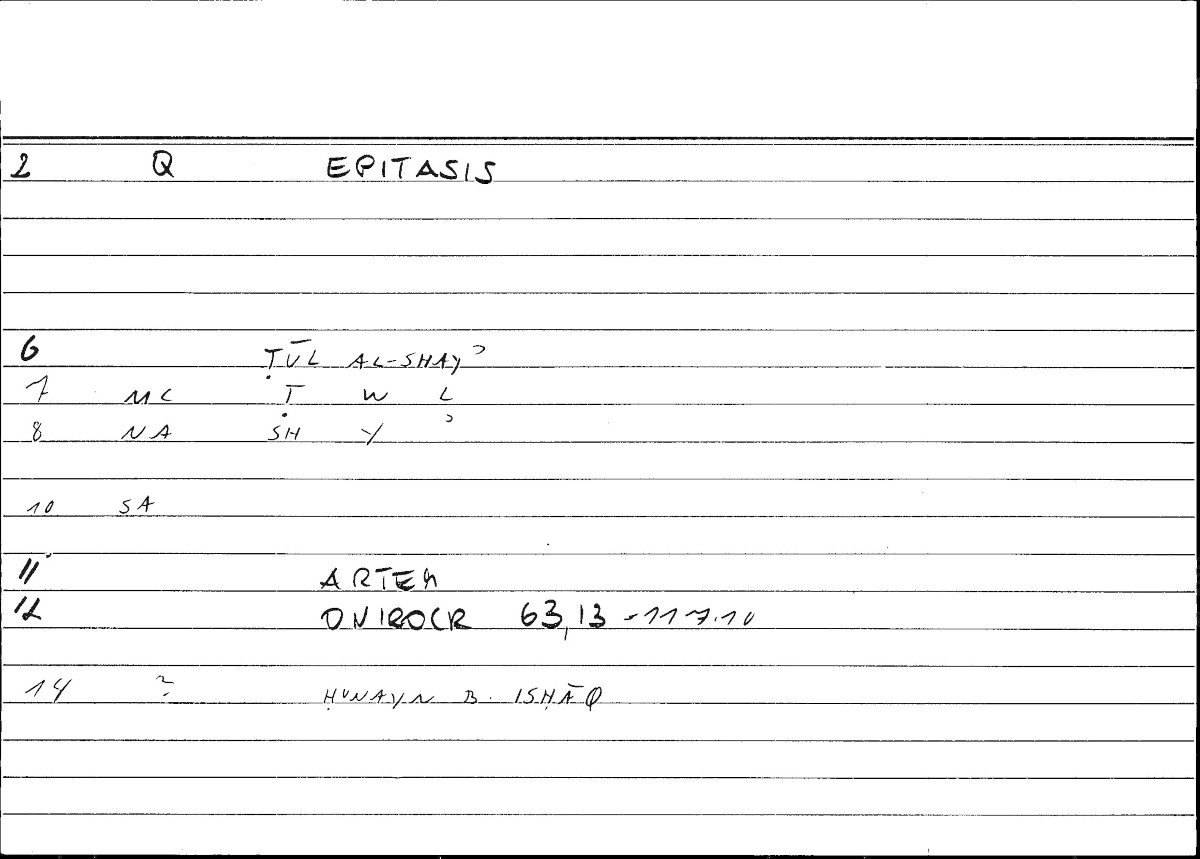 2 Q EPITASIS
6 ṬŪL AL-SHAYʾ
7 MC Ṭ W L
8 NA SH Y ʾ
10 SA
11 ARTEM
12 ONIROCR 63,13 - 117.10
14 ? ḤUNAYN B. ISḤĀQ